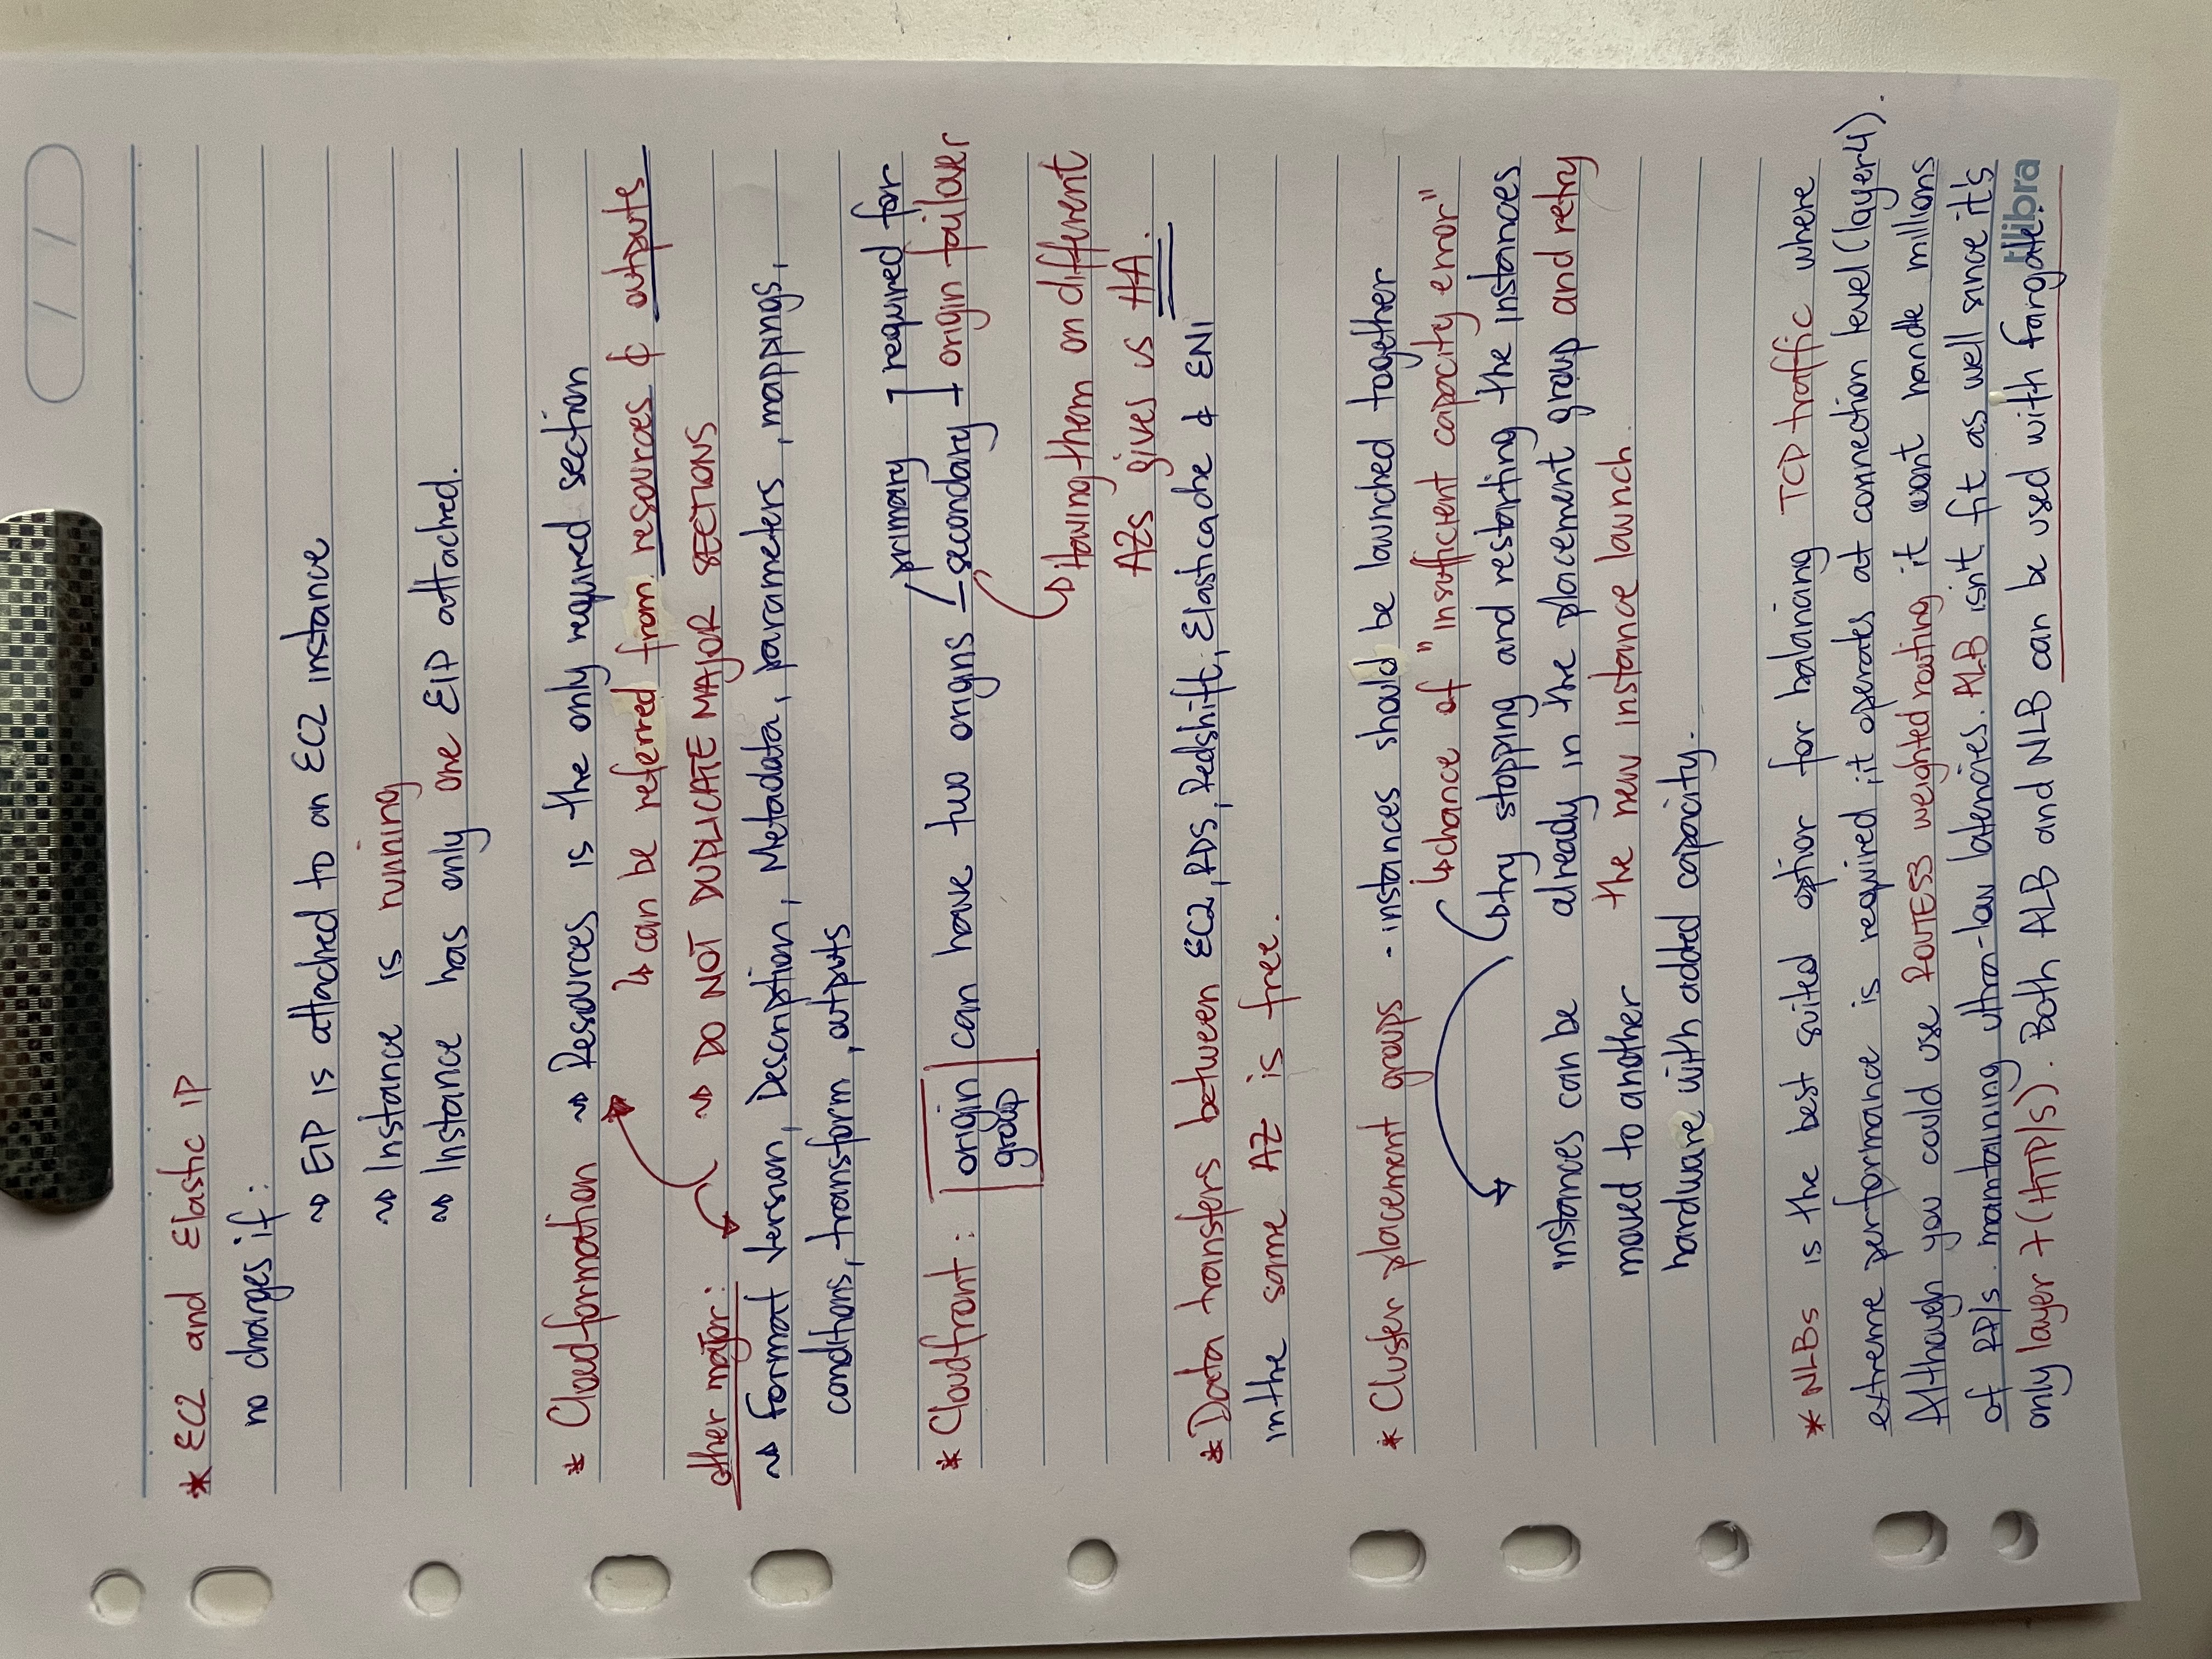 * EC2 and Elastic IP
no charges if:
~> EIP is attached to an EC2 instance
~> Instance is running
~> Instance has only one EIP attached.
* Cloudformation ~> Resources is the only required section
↳ can be referred from resources & outputs
~> DO NOT DUPLICATE MAJOR SECTIONS
other major:
~> Format Version, Description, Metadata, parameters, mappings,
conditions, transform, outputs
* Cloudfront: origin group can have two origins
primary
secondary
required for
origin failover
↳ Having them on different
AZs gives us HA.
* Data transfers between EC2, RDS, Redshift, Elasticache & ENI
in the same AZ is free.
* Cluster placement groups - instances should be launched together
↳ chance of "insufficient capacity error"
↳ try stopping and restarting the instances
already in the placement group and retry
the new instance launch.
instances can be
moved to another
hardware with added capacity.
* NLBs is the best suited option for balancing TCP traffic where
extreme performance is required, it operates at connection level (layer 4).
Although you could use ROUTE53 weighted routing it wont handle millions
of RP/s maintaining ultra-low latencies. ALB isn't fit as well since it's
only layer 7 (HTTP/S). Both ALB and NLB can be used with fargate.
tilibra